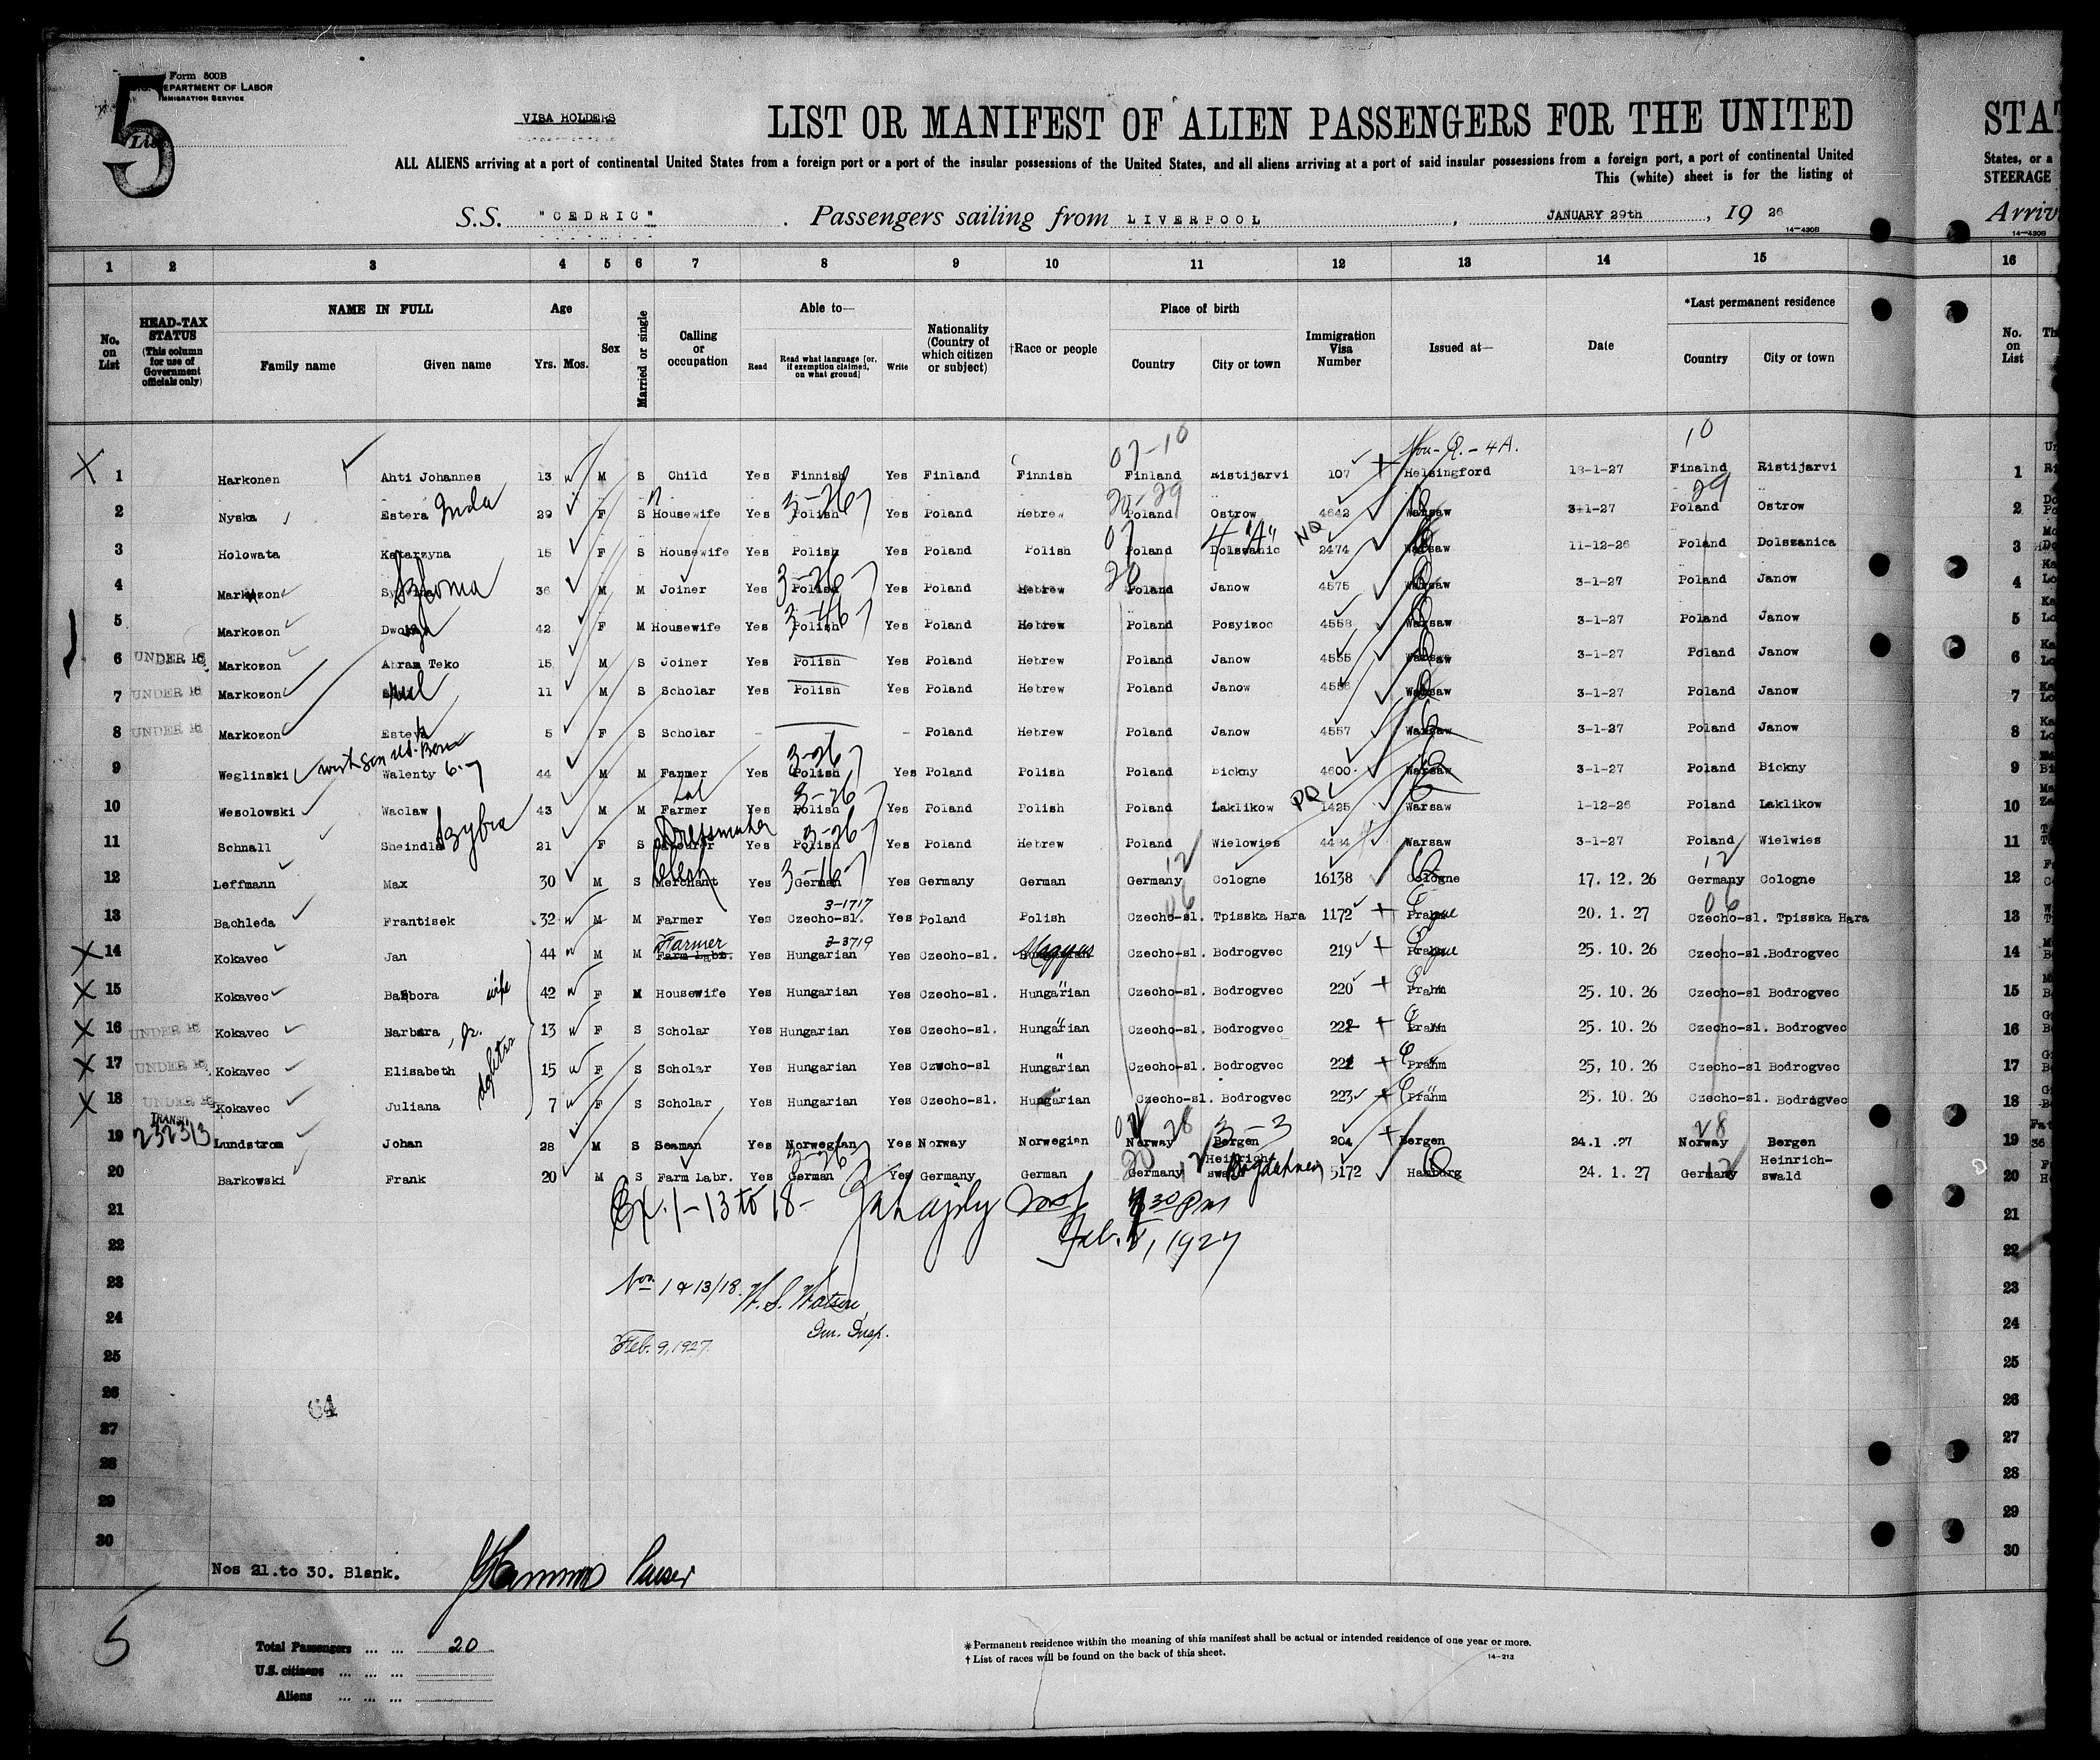 5
Form 500B
DEPARTMENT OF LABOR
IMMIGRATION SERVICE
List
VISA HOLDERS
LIST OR MANIFEST OF ALIEN PASSENGERS FOR THE UNITED
ALL ALIENS arriving at a port of continental United States from a foreign port or a port of the insular possessions of the United States, and all aliens arriving at a port of said insular possessions from a foreign port, a port of continental United
This (white) sheet is for the listing of
S.S. "CEDRIC". Passengers sailing from LIVERPOOL, JANUARY 29th, 19 26
14-430B
1 2 3 4 5 6 7 8 9 10 11 12 13 14 15
No. on List
HEAD-TAX STATUS (This column for use of Government officials only)
NAME IN FULL Family name Given name
Age Yrs. Mos.
Sex
Married or single
Calling or occupation
Able to— Read Read what language [or, if exemption claimed, on what ground] Write
Nationality (Country of which citizen or subject)
†Race or people
Place of birth Country City or town
Immigration Visa Number
Issued at—
Date
*Last permanent residence Country City or town
07-10 Non-Q.-4A. 10
X 1 Harkonen Ahti Johannes 13 M S Child Yes Finnish Yes Finland Finnish Finland Ristijarvi 107 Helsingford 18-1-27 Finalnd Ristijarvi
3-26 20-29 29
2 Nyska Estera 29 F S Housewife Yes Polish Yes Poland Hebrew Poland Ostrow 4642 Warsaw 3-1-27 Poland Ostrow
07 4"A" NQ
3 Holowata Katarzyna 15 F S Housewife Yes Polish Yes Poland Polish Poland Dolszanic 2474 Warsaw 11-12-26 Poland Dolszanica
Szloma 3-26
4 Markozon 36 M M Joiner Yes Polish Yes Poland Hebrew Poland Janow 4575 Warsaw 3-1-27 Poland Janow
5 Markozon 42 F M Housewife Yes Polish Yes Poland Hebrew Poland Posyizoc 4558 Warsaw 3-1-27 Poland Janow
6 UNDER 16 Markozon Abram Teko 15 M S Joiner Yes Polish Yes Poland Hebrew Poland Janow 4555 Warsaw 3-1-27 Poland Janow
7 UNDER 16 Markozon 11 M S Scholar Yes Polish Yes Poland Hebrew Poland Janow 4556 Warsaw 3-1-27 Poland Janow
8 UNDER 16 Markozon 5 F S Scholar - - Poland Hebrew Poland Janow 4557 Warsaw 3-1-27 Poland Janow
3-26
9 Weglinski Walenty 44 M M Farmer Yes Polish Yes Poland Polish Poland Bickny 4600 Warsaw 3-1-27 Poland Bickny
3-26 PQ
10 Wesolowski Waclaw 43 M M Farmer Yes Polish Yes Poland Polish Poland Laklikow 1425 Warsaw 1-12-26 Poland Laklikow
Dressmaker 3-26
11 Schnall Sheindla 21 F S Yes Polish Yes Poland Hebrew Poland Wielowies Warsaw 3-1-27 Poland Wielwies
Clerk 3-16 12 12
12 Leffmann Max 30 M S Merchant Yes German Yes Germany German Germany Cologne 16138 Cologne 17. 12. 26 Germany Cologne
3-1717 06 06
13 Bachleda Frantisek 32 M M Farmer Yes Czecho-sl. Yes Poland Polish Czecho-sl. Tpisska Hara 1172 Prague 20. 1. 27 Czecho-sl. Tpisska Hara
Farmer 3-3719 Magyar
X 14 Kokavec Jan 44 M M Farm Labr. Yes Hungarian Yes Czecho-sl. Czecho-sl. Bodrogvec 219 Prague 25. 10. 26 Czecho-sl. Bodrogvec
X 15 Kokavec Barbora wife 42 F M Housewife Yes Hungarian Yes Czecho-sl. Hungarian Czecho-sl. Bodrogvec 220 25. 10. 26 Czecho-sl Bodrogvec
X 16 UNDER 16 Kokavec Barbara, Jr. 13 F S Scholar Yes Hungarian Yes Czecho-sl. Hungarian Czecho-sl. Bodrogvec Prahm 25. 10. 26 Czecho-sl. Bodrogvec
X 17 UNDER 16 Kokavec Elisabeth 15 F S Scholar Yes Hungarian Yes Czecho-sl Hungarian Czecho-sl. Bodrogvec Prahm 25, 10. 26 Czecho-sl Bodrogvec
X 18 UNDER 16 Kokavec Juliana 7 F S Scholar Yes Hungarian Yes Czecho-sl. Hungarian Czecho-sl. Bodrogvec 223 Prahm 25. 10. 26 Czecho-sl. Bodrogvec
TRANSIT 28 3-3 28
19 232313 Lundstrom Johan 28 M S Seaman Yes Norwegian Yes Norway Norwegian Norway Bergen 204 Bergen 24.1 .27 Norway Bergen
3-26 12
20 Barkowski Frank 20 M S Farm Labr. Yes German Yes Germany German Germany Heinrichswald 5172 Hamburg 24. 1. 27 Germany Heinrich-swald
21 Ex. 1-13 to 18- 30 Pm
22 Feb. 1927
23 Nos. 1 & 13/18. W. S. Watson,
24 Im. Insp.
25 Feb. 9, 1927.
26 64
27
28
29
30
Nos 21.to 30. Blank. Purser
5
Total Passengers ... ... 20
U.S. citizens ... ... ...
Aliens ... ... ...
*Permanent residence within the meaning of this manifest shall be actual or intended residence of one year or more.
†List of races will be found on the back of this sheet.
14-213
STAT
States, or a
STEERAGE
Arriv
14-430B
16
No. on List
Th
1
2
3
4
5
6
7
8
9
10
11
12
13
14
15
16
17
18
19
20
21
22
23
24
25
26
27
28
29
30